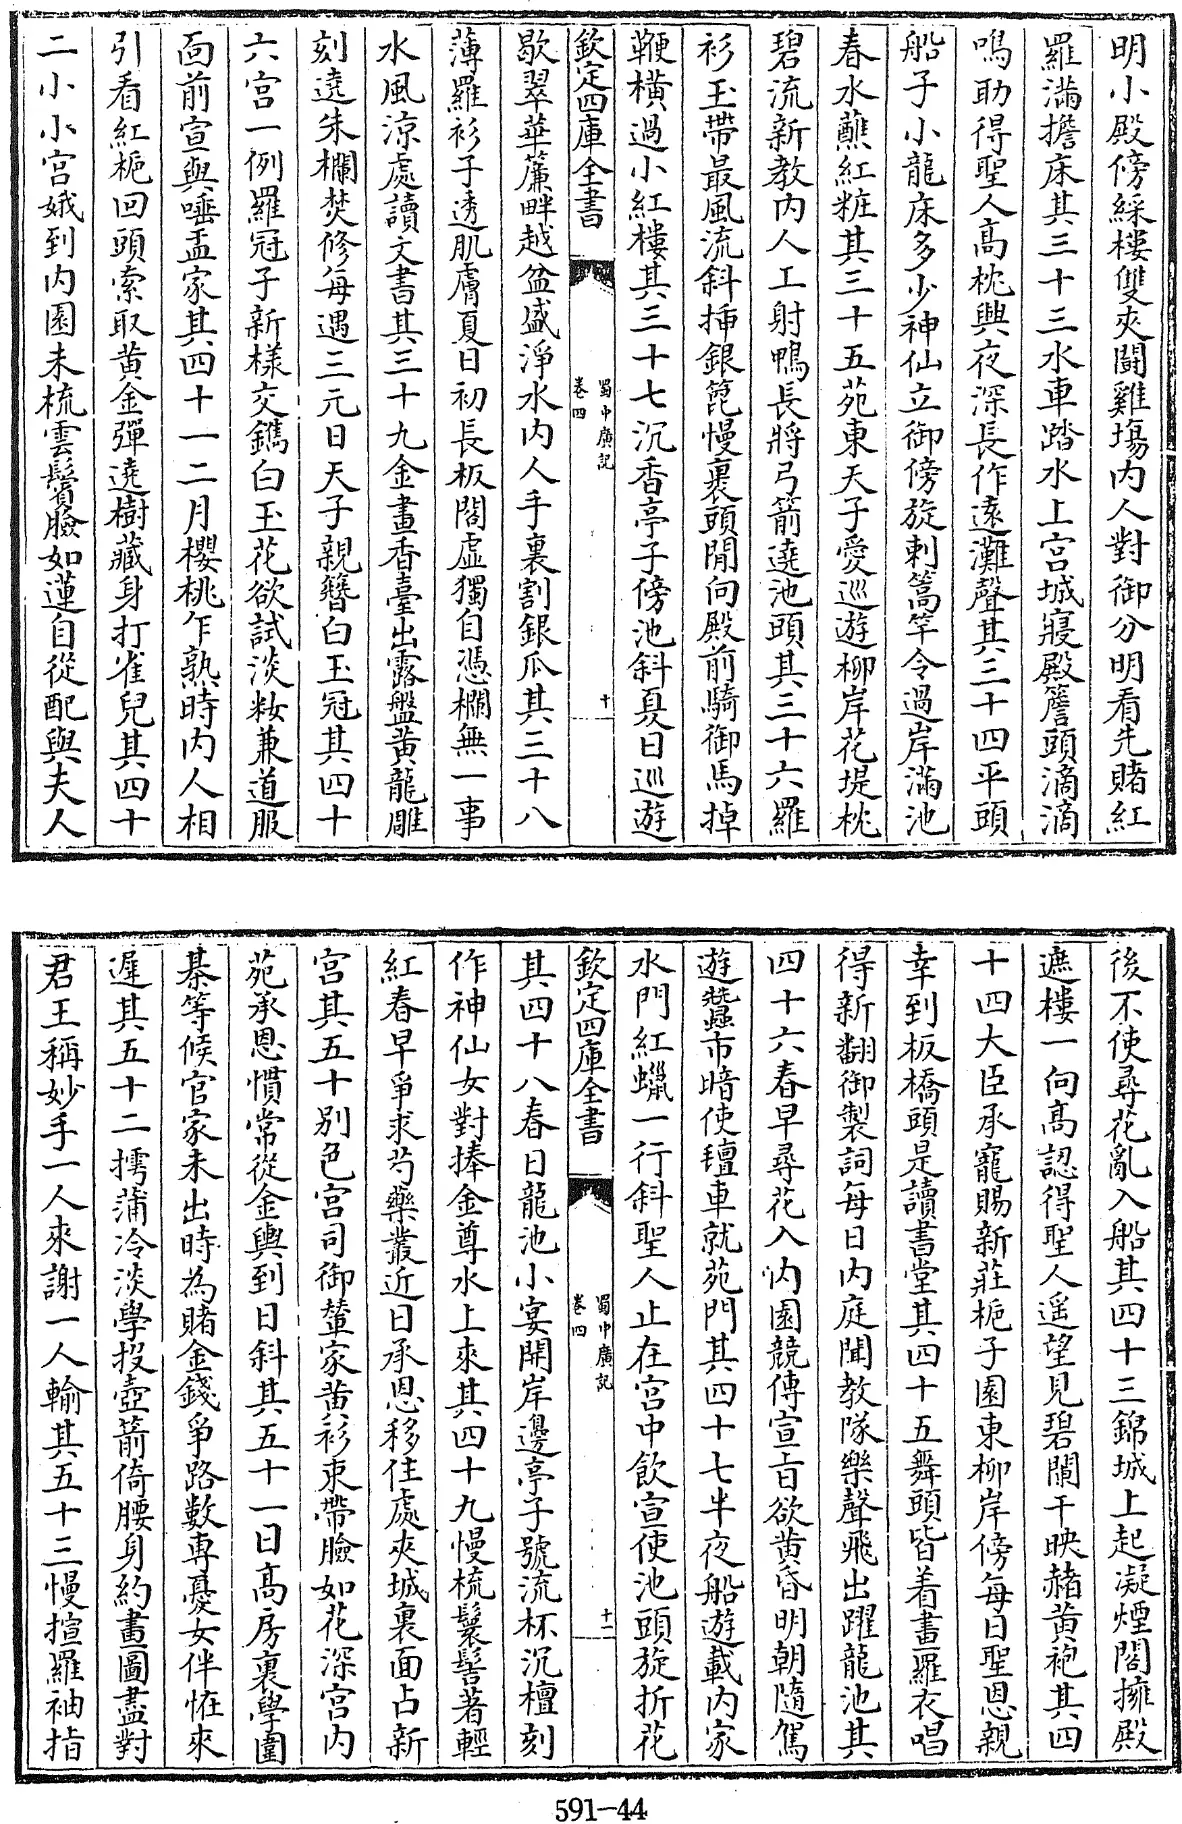 明小殿傍綵樓雙夾鬭雞塲内人對御分明看先賭紅
羅滿擔床其三十三水車踏水上宮城寢殿簷頭滴滴
鳴助得聖人髙枕興夜深長作逺灘聲其三十四平頭
船子小龍床多少神仙立御傍旋刺篙竿令過岸滿池
春水蘸紅粧其三十五苑東天子愛巡遊柳岸花堤枕
碧流新教内人工射鴨長將弓箭遶池頭其三十六羅
衫玉帶最風流斜挿銀箆慢裹頭閒向殿前騎御馬掉
鞭横過小紅樓其三十七沉香亭子傍池斜夏日巡遊
欽定四庫全書
蜀中廣記
卷四
十
歇翠華簾畔越盆盛淨水内人手裏割銀瓜其三十八
薄羅衫子透肌膚夏日初長板閣虚獨自憑欄無一事
水風涼處讀文書其三十九金畫香臺出露盤黄龍雕
刻遶朱欄焚修每遇三元日天子親簪白玉冠其四十
六宮一例羅冠子新様交鐫白玉花欲試淡粧兼道服
面前宣與唾盂家其四十一二月櫻桃乍熟時内人相
引看紅梔回頭索取黄金彈遶樹藏身打雀兒其四十
二小小宮娥到内園未梳雲鬢臉如蓮自從配與夫人
後不使尋花亂入船其四十三錦城上起凝煙閣擁殿
遮樓一向髙認得聖人遥望見碧闌干映赭黄袍其四
十四大臣承寵賜新莊梔子園東柳岸傍每日聖恩親
幸到板橋頭是讀書堂其四十五舞頭皆着畫羅衣唱
得新翻御製詞每日内庭聞教隊樂聲飛出躍龍池其
四十六春早尋花入内園競傳宣㫖欲黄昏明朝隨駕
遊蠶市暗使氊車就苑門其四十七半夜船遊載内家
水門紅蠟一行斜聖人止在宮中飲宣使池頭旋折花
欽定四庫全書
蜀中廣記
卷四
十一
其四十八春日龍池小宴開岸邊亭子號流杯沉檀刻
作神仙女對捧金尊水上來其四十九慢梳鬟髻著輕
紅春早爭求芍藥叢近日承恩移住處夾城裏面占新
宮其五十別色宮司御輦家黄衫束帶臉如花深宮内
苑承恩慣常從金輿到日斜其五十一日髙房裏學圍
棊等候官家未出時為賭金錢爭路數專憂女伴恠來
遲其五十二摴蒲冷淡學投壺箭倚腰身約畫圖盡對
君王稱妙手一人來謝一人輸其五十三慢揎羅袖指
591-44